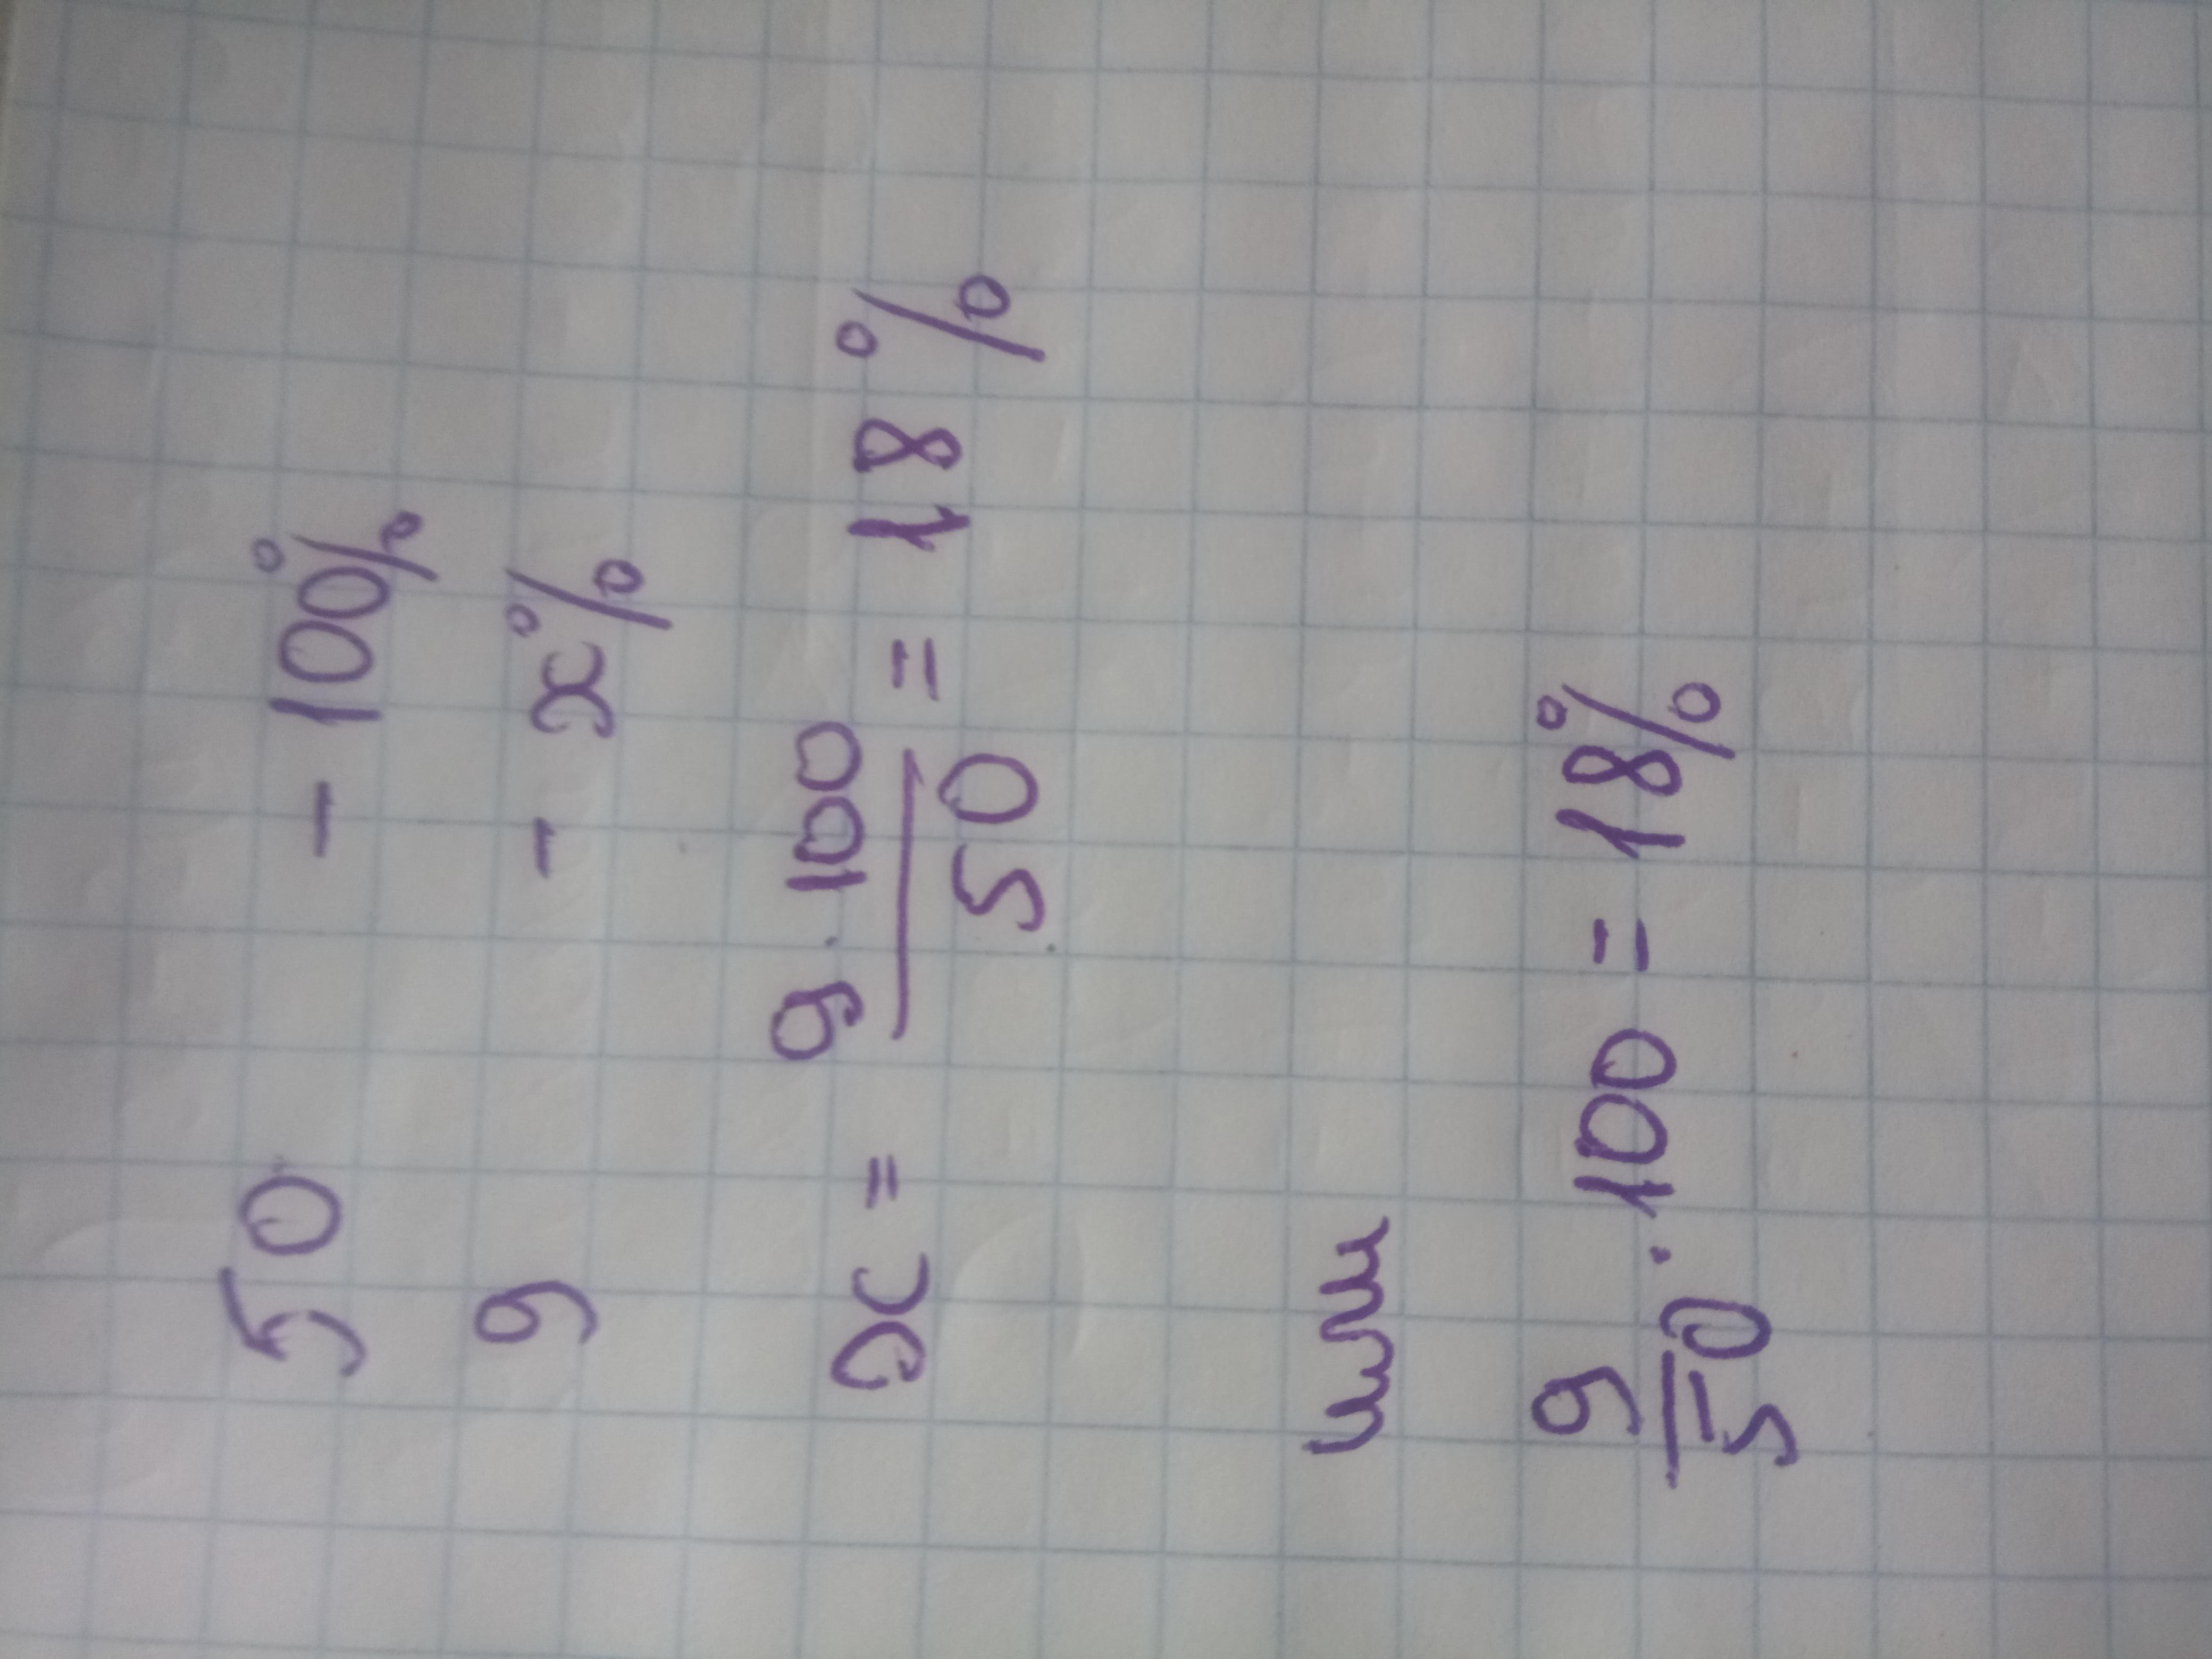 50 - 100%
9 - x%
x = 9·100/50 = 18%
или
9/50 · 100 = 18%